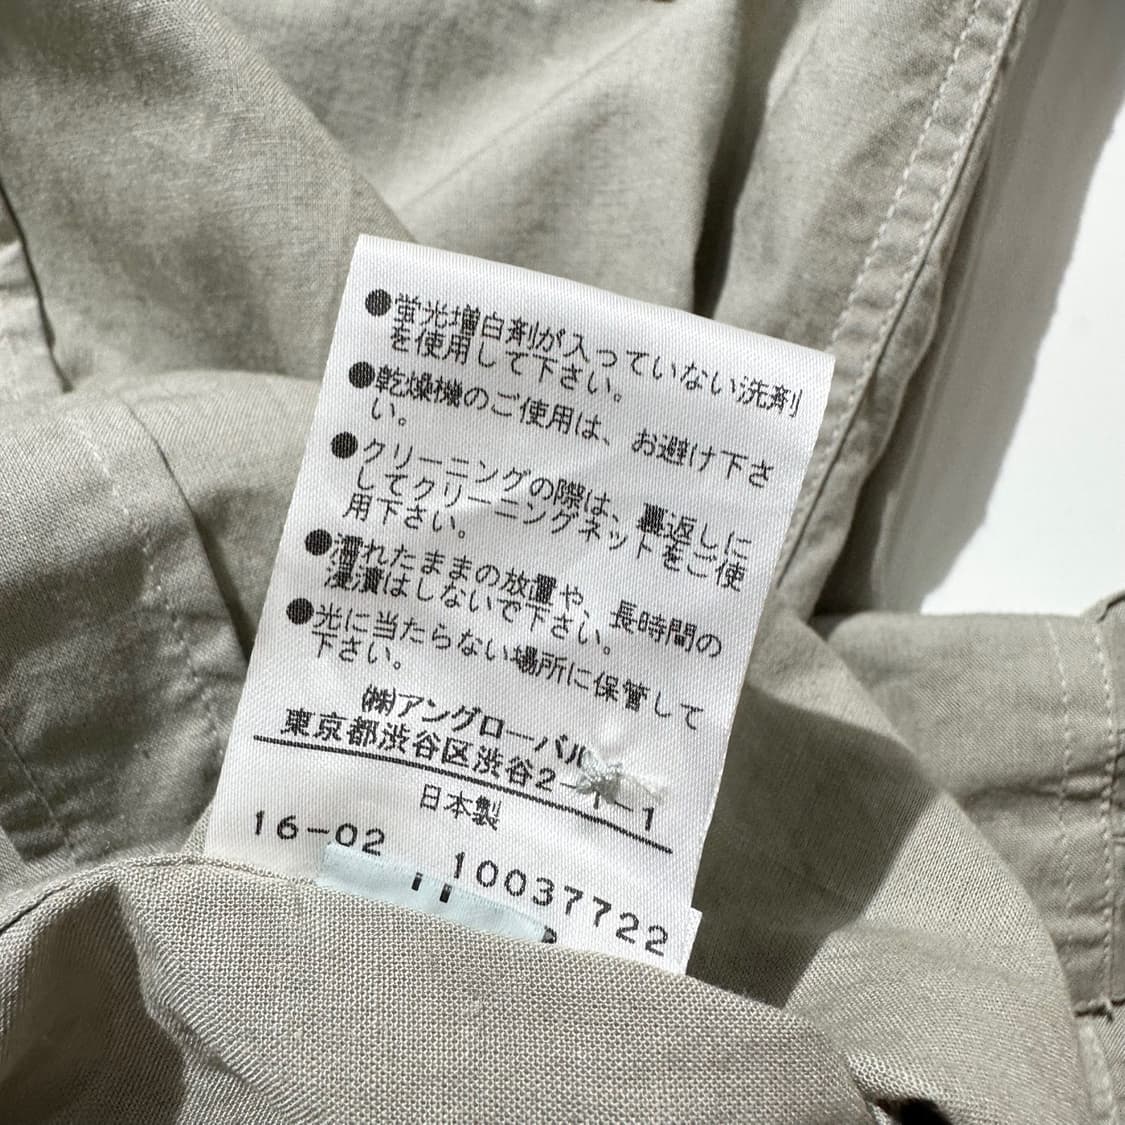 ●蛍光増白剤が入っていない洗剤
を使用して下さい。
●乾燥機のご使用は、お避け下さ
い。
●クリーニングの際は、裏返しに
してクリーニングネットをご使
用下さい。
●濡れたままの放置や、長時間の
浸漬はしないで下さい。
●光に当たらない場所に保管して
下さい。
㈱アングローバル
東京都渋谷区渋谷2-1-1
日本製
16-02 10037722